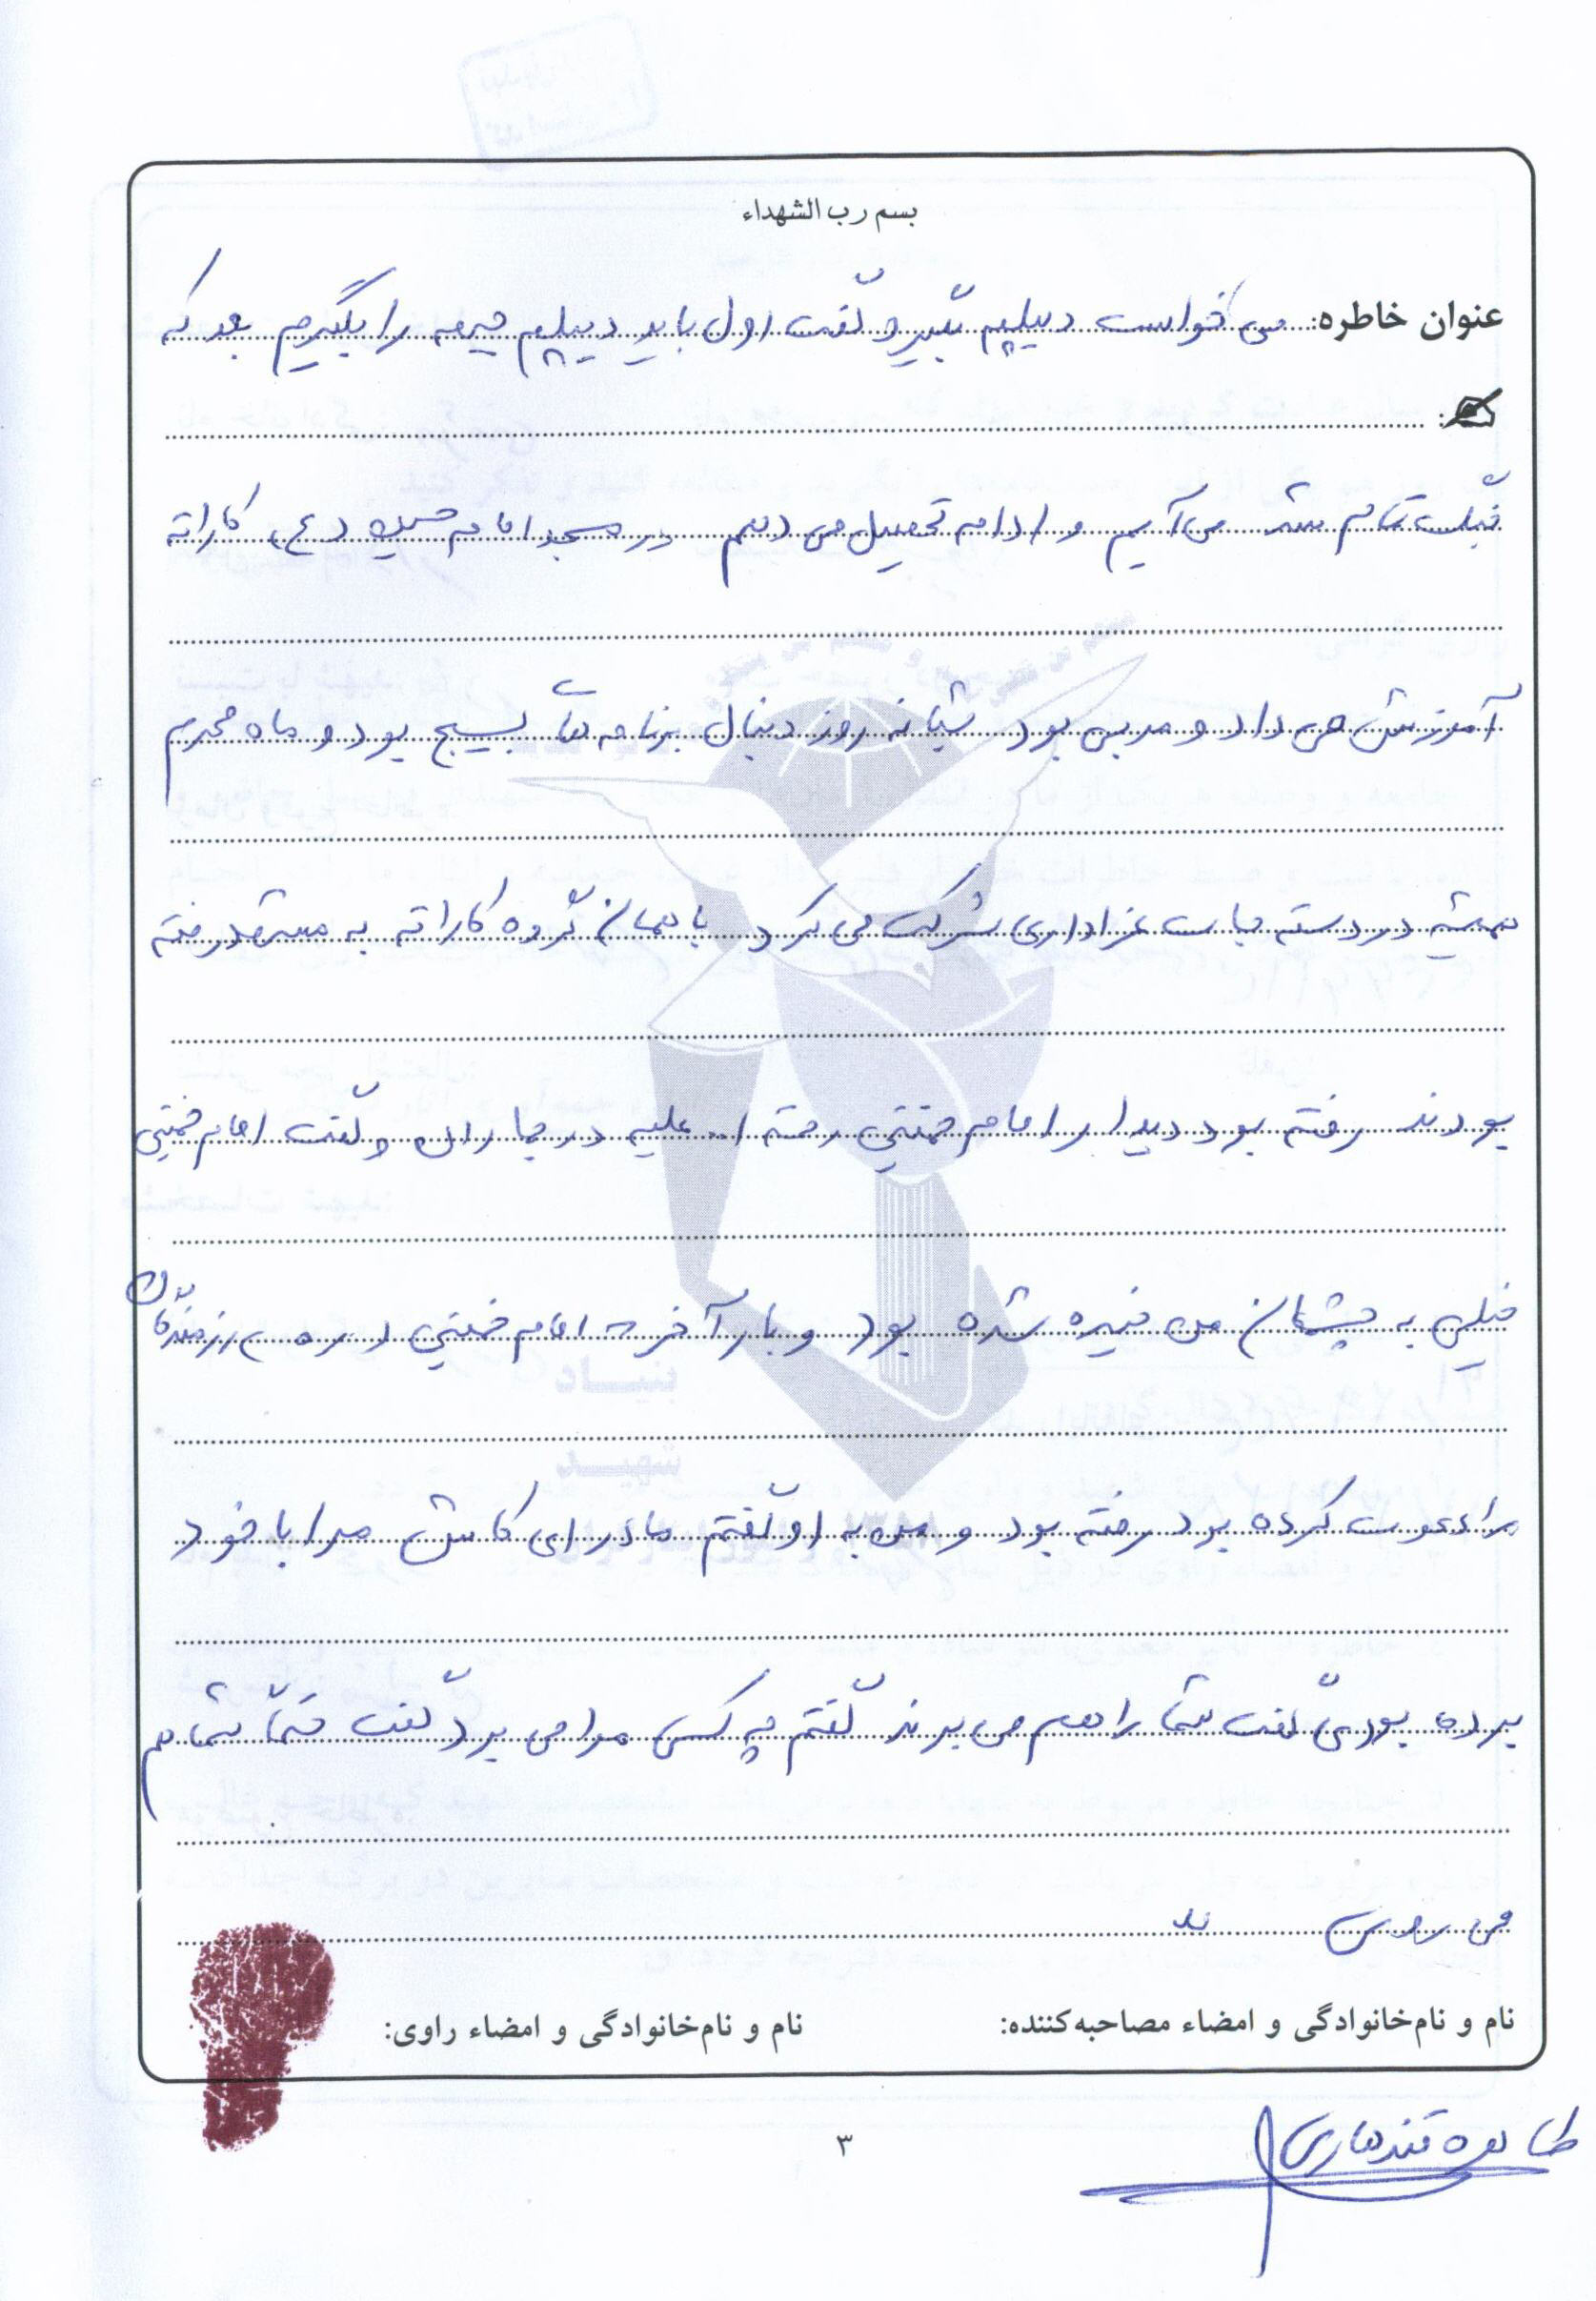 بسم رب الشهداء
عنوان خاطره: می خواست دیپلم بگیرد گفت اول باید دیپلم جبهه را بگیرم بعد که
جنگ تمام شد می آیم و ادامه تحصیل می دهم در مسجد امام حسین (ع) کاراته
آموزش می داد و مربی بود شبانه روز دنبال برنامه های بسیج بود و ماه محرم
همیشه در دسته جات عزاداری شرکت می کرد با همان گروه کاراته به مشهد رفته
بودند رفته بود دیدار امام خمینی رحمته ا... علیه در جماران و گفت امام خمینی
خیلی به چشمان من خیره شده بود و بار آخر امام خمینی رزمندگان
را دعوت کرده بود رفته بود و من به او گفتم مادر ای کاش مرا با خود
برده بودی گفت شما را هم می برند گفتم چه کسی مرا می برد گفت حتما شما هم
می روی
نام و نام‌خانوادگی و امضاء مصاحبه‌کننده:
نام و نام‌خانوادگی و امضاء راوی:
طاهره قندهاری
۳